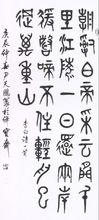 朝辭白帝采雲間千
里江陵一日還兩岸
猿聲啼不住輕舟已
過萬重山
李白詩一首
庚辰仲夏尹天鵬篆於